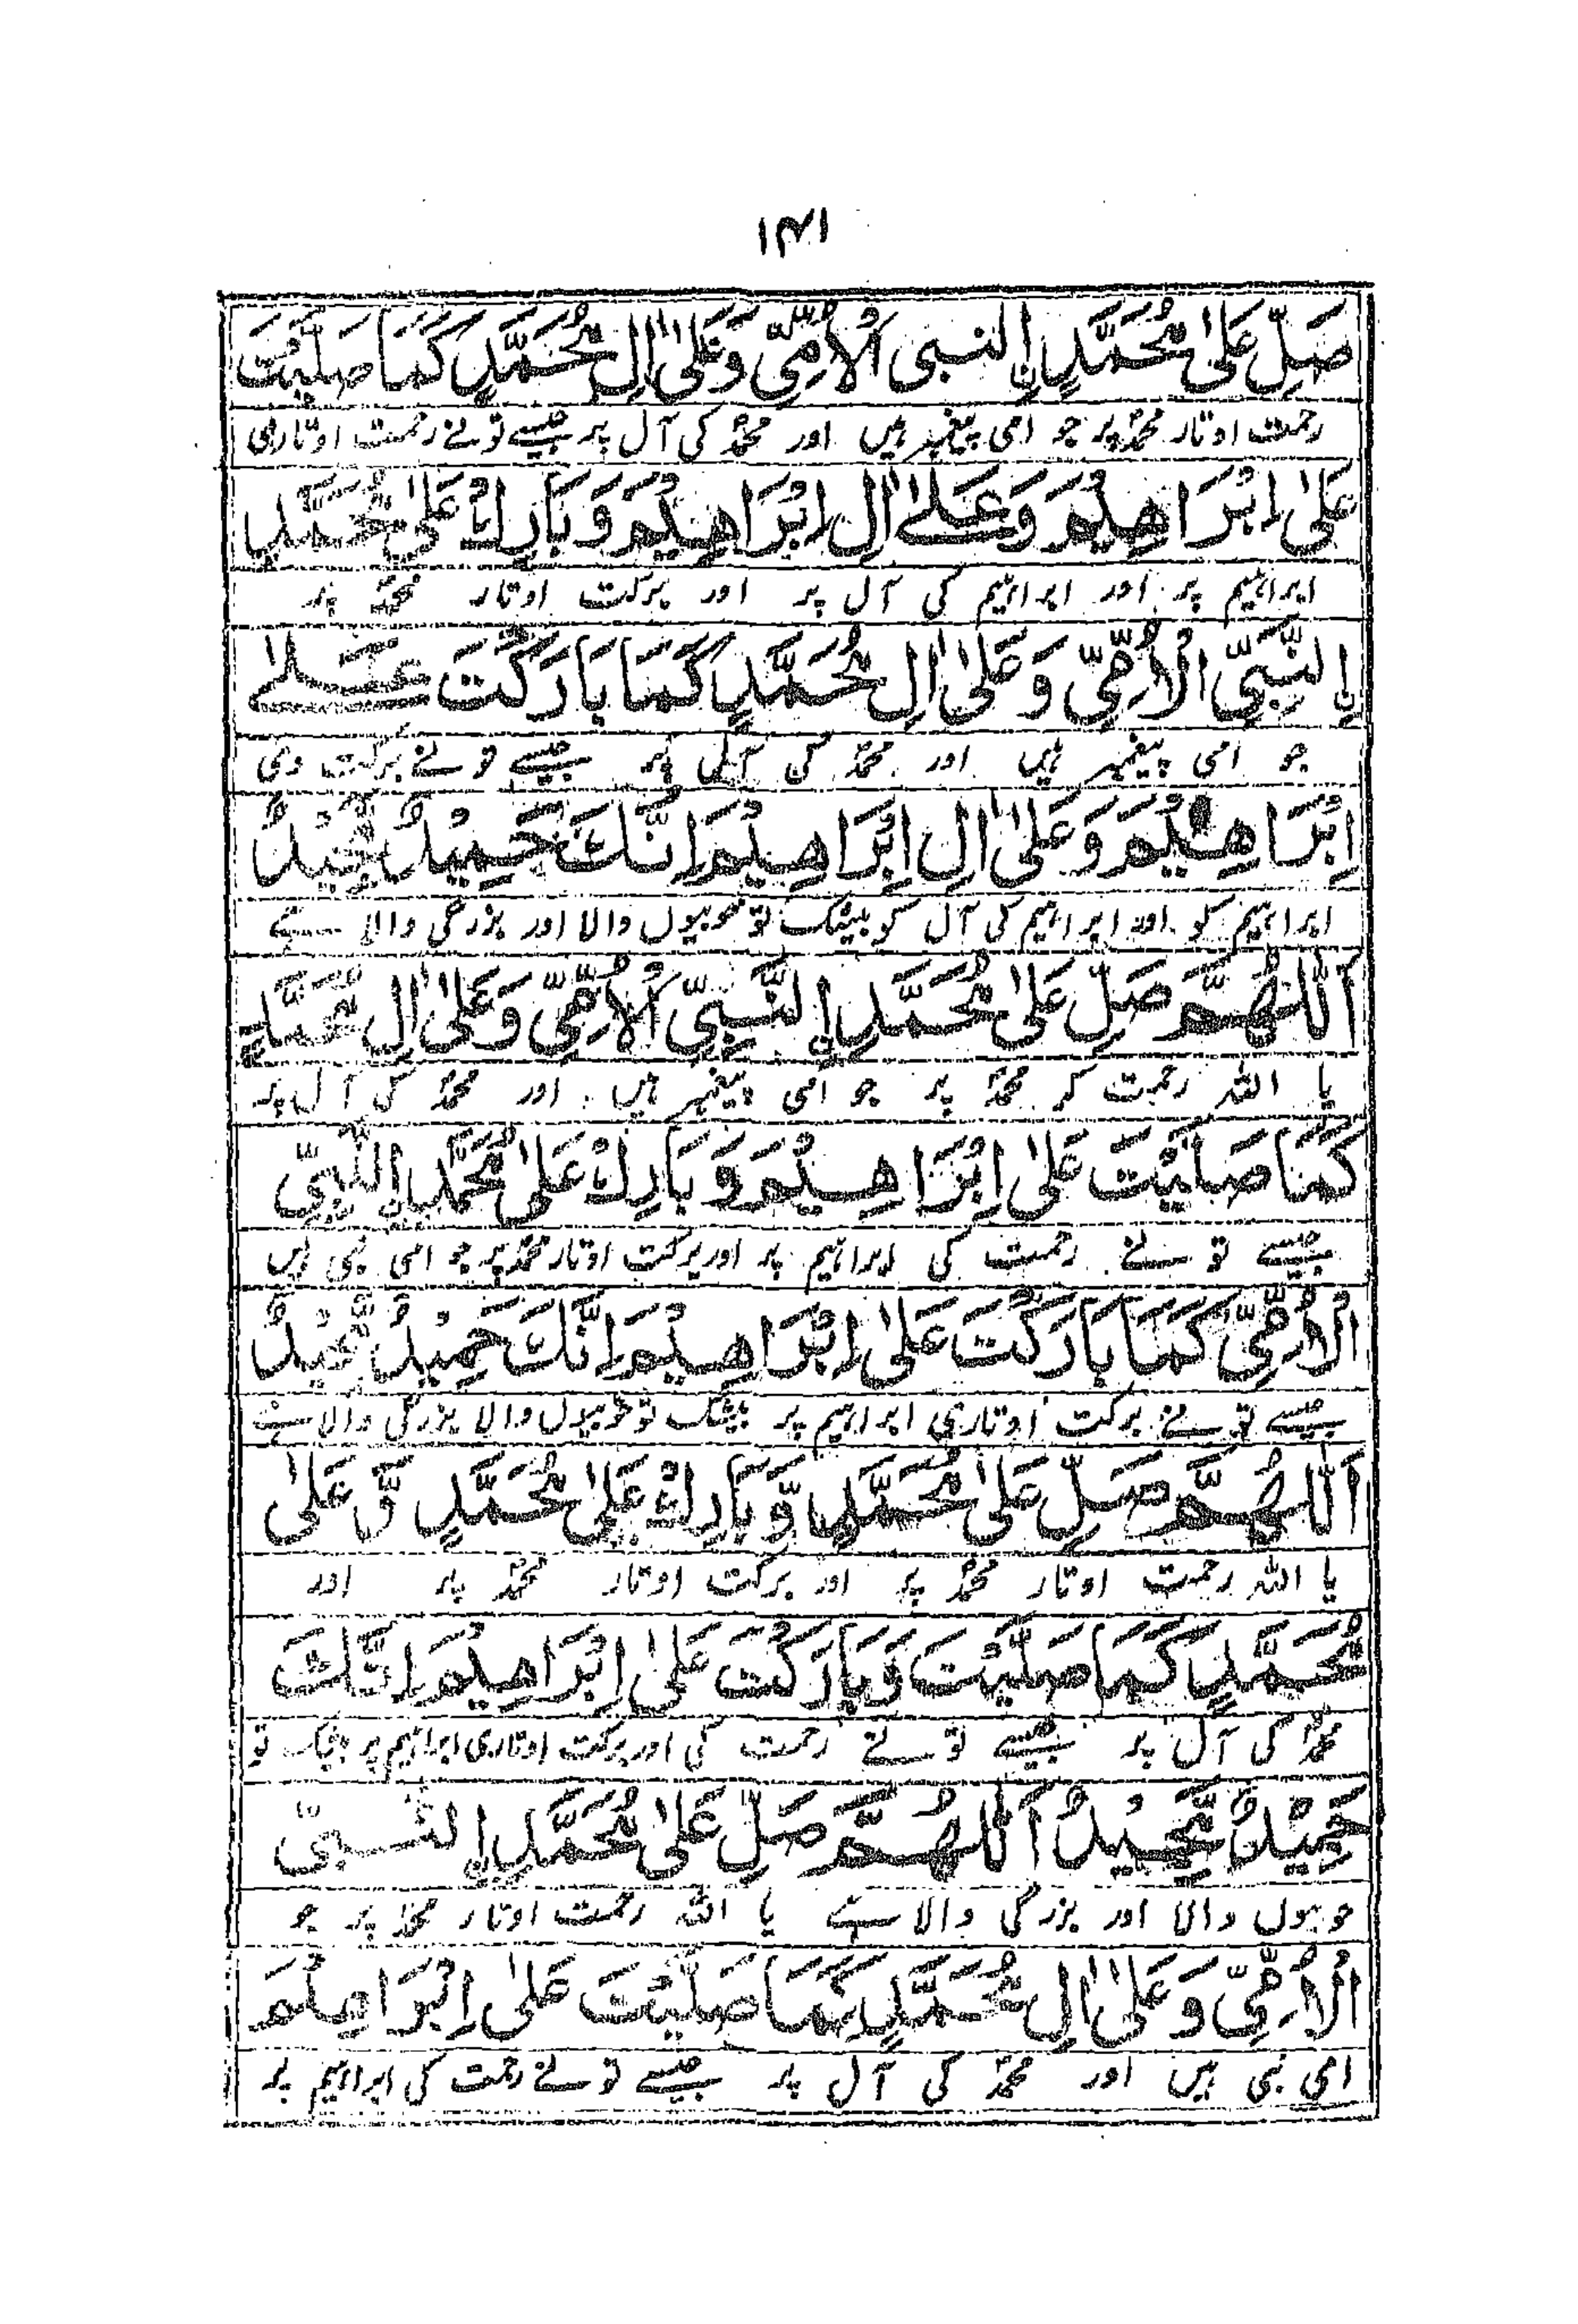 ۱۴۱
صَلِّ عَلٰى مُحَمَّدٍ اِ۟لنبی الْاُمِّيِّ وَعَلٰۤى اٰلِ مُحَمَّدٍ كَمَا صَلَّيْتَ
رحمت اوتار محمدؐ پر جو امی پیغمبر ہیں اور محمدؐ کی آل پر جیسے تو نے رحمت اوتاری
عَلٰى اِبْرَاهِيْمَ وَعَلٰۤى اٰلِ اِبْرَاهِيْمَ وَبَارِكْ عَلٰى مُحَمَّدٍ
ابراہیم پر اور ابراہیم کی آل پر اور برکت اوتار محمدؐ پر
اِ۟لنَّبِيِّ الْاُمِّيِّ وَعَلٰۤى اٰلِ مُحَمَّدٍ كَمَا بَارَكْتَ عَلٰۤى
جو امی پیغمبر ہیں اور محمدؐ کی آل پر جیسے تو نے برکت دی
اِبْرَاهِيْمَ وَعَلٰۤى اٰلِ اِبْرَاهِيْمَ اِنَّكَ حَمِيْدٌ مَّجِيْدٌ
ابراہیم کو اور ابراہیم کی آل کو بیشک تو خوبیوں والا اور بزرگی والا ہے
اَللّٰهُمَّ صَلِّ عَلٰى مُحَمَّدٍ اِ۟لنَّبِيِّ الْاُمِّيِّ وَعَلٰۤى اٰلِ مُحَمَّدٍ
یا اللہ رحمت کر محمدؐ پر جو امی پیغمبر ہیں اور محمدؐ کی آل پر
كَمَا صَلَّيْتَ عَلٰۤى اِبْرَاهِيْمَ وَبَارِكْ عَلٰى مُحَمَّدٍ اِ۟لنَّبِيِّ
جیسے تو نے رحمت کی ابراہیم پر اور برکت اوتار محمدؐ پر جو امی نبی ہیں
الْاُمِّيِّ كَمَا بَارَكْتَ عَلٰۤى اِبْرَاهِيْمَ اِنَّكَ حَمِيْدٌ مَّجِيْدٌ
جیسے تو نے برکت اوتاری ابراہیم پر بیشک تو خوبیوں والا بزرگی والا ہے
اَللّٰهُمَّ صَلِّ عَلٰى مُحَمَّدٍ وَّبَارِكْ عَلٰى مُحَمَّدٍ وَّعَلٰى
یا اللہ رحمت اوتار محمدؐ پر اور برکت اوتار محمدؐ پر اور
مُحَمَّدٍ كَمَا صَلَّيْتَ وَبَارَكْتَ عَلٰى اِبْرَاهِيْمَ اِنَّكَ
محمدؐ کی آل پر جیسے تو نے رحمت کی اور برکت اوتاری ابراہیم پر بیشک تو
حَمِيْدٌ مَّجِيْدٌ اَللّٰهُمَّ صَلِّ عَلٰى مُحَمَّدٍ اِ۟لنَّبِيِّ
خوبیوں والا اور بزرگی والا ہے یا اللہ رحمت اوتار محمدؐ پر جو
الْاُمِّيِّ وَعَلٰۤى اٰلِ مُحَمَّدٍ كَمَا صَلَّيْتَ عَلٰى اِبْرَاهِيْمَ
امی نبی ہیں اور محمدؐ کی آل پر جیسے تو نے رحمت کی ابراہیم پر